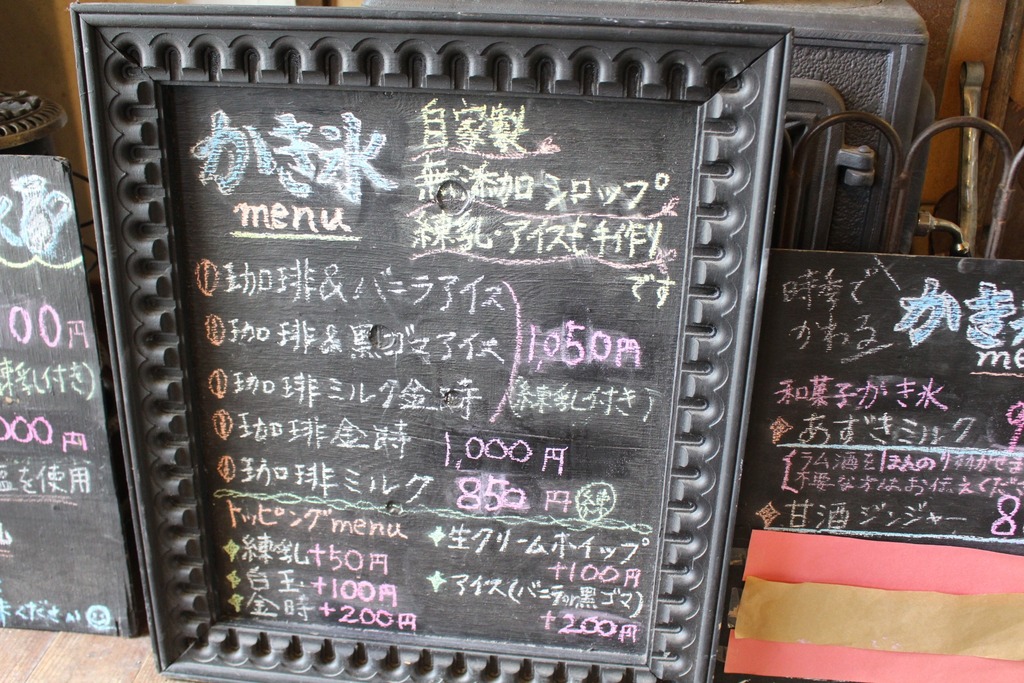 かき氷
menu
自家製
無添加シロップ
練乳 アイスも手作り
です
珈琲&バニラアイス
珈琲&黒ゴマアイス
1,050円
珈琲ミルク金時
(練乳付き)
珈琲金時
1,000円
珈琲ミルク
850円 練
トッピングmenu
練乳+50円
白玉+100円
金時+200円
生クリームホイップ
+100円
アイス(バニラor黒ゴマ)
+200円
00円
練乳付き)
000円
塩を使用
ください
時季で
かわる
かき
me
和菓子かき氷
あずきミルク
ラム酒をほんのり効かせま
不要な方はお伝えくだ
甘酒ジンジャー
8